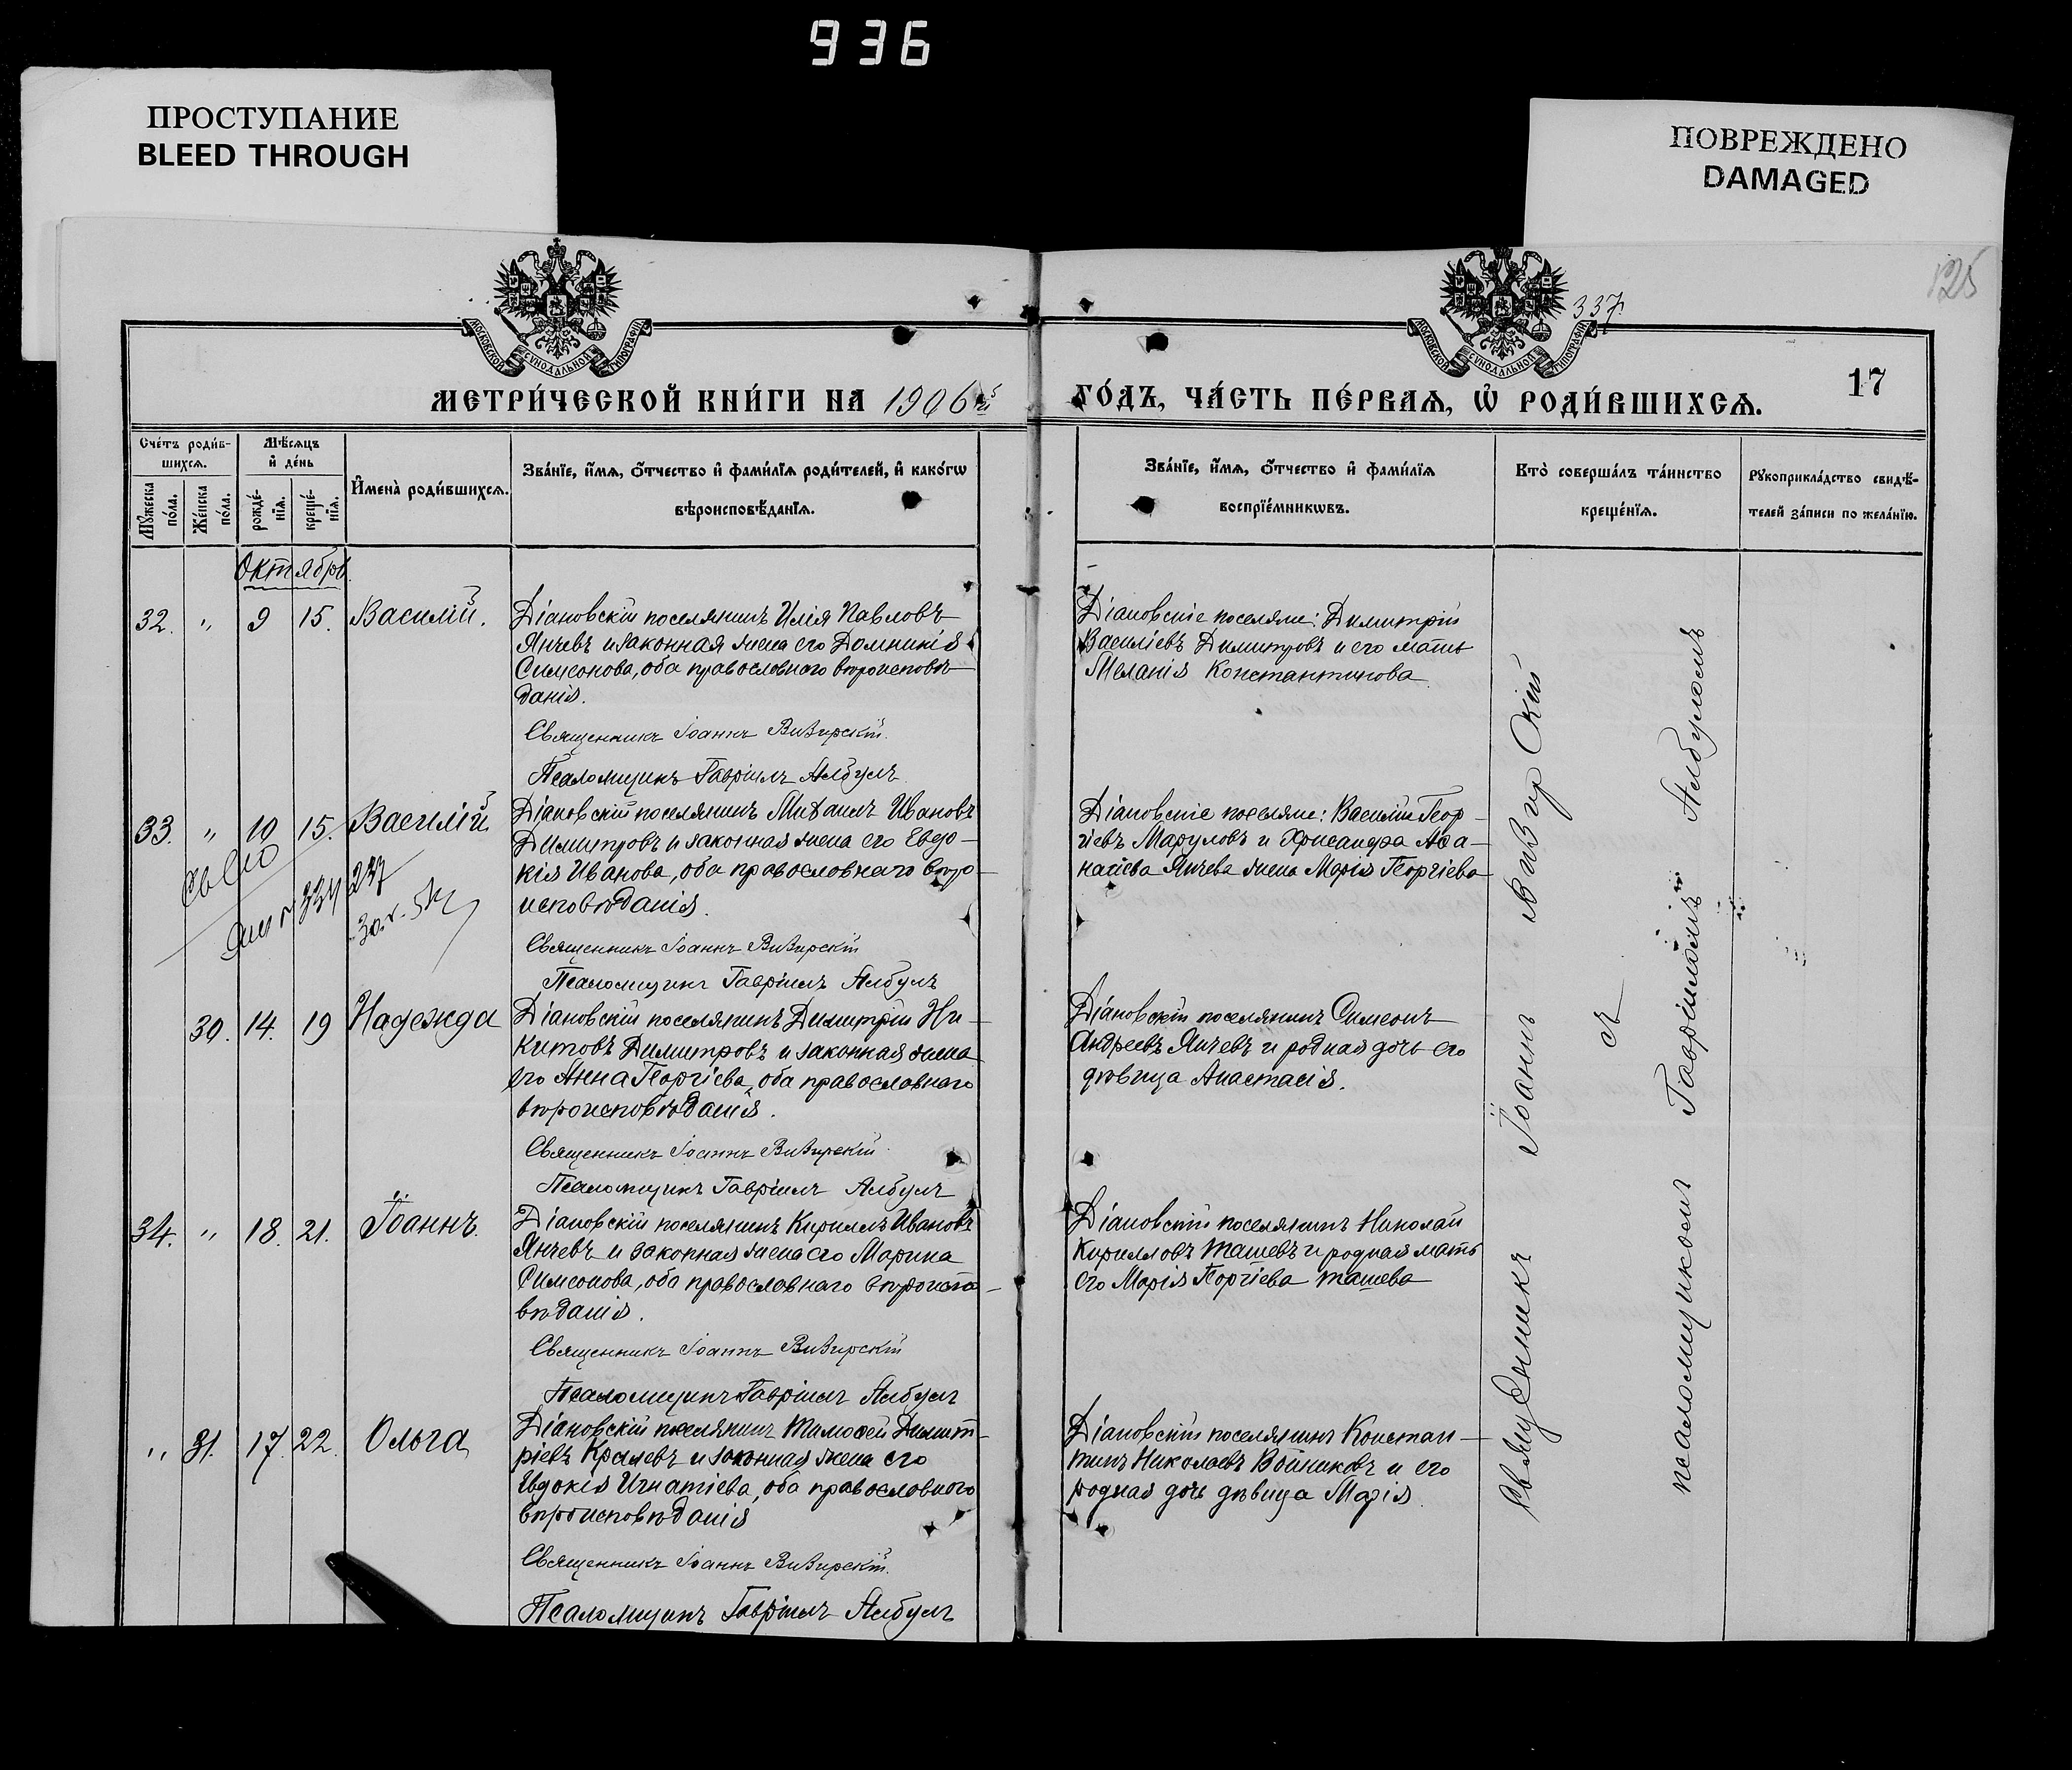 936
ПРОСТУПАНИЕ
BLEED THROUGH
ПОВРЕЖДЕНО
DAMAGED
125
337
МОСКОВСКОЙ СѴНОДАЛЬНОЙ ТИПОГРАФІИ
МОСКОВСКОЙ СѴНОДАЛЬНОЙ ТИПОГРАФІИ
МЕТРИ́ЧЕСКОЙ КНИ́ГИ НА 1906й
ГО́ДЪ, ЧА́СТЬ ПЕ́РВАѦ, Ѡ҆ РОДИ́ВШИХСѦ.
17
Сче́тъ роди́в-
шихсѧ.
Мѣ́сѧцъ
и҆ де́нь
И҆мена̀ роди́вшихсѧ.
Зва́нїе, и҆́мѧ, ѻ҆́тчество и҆ фами́лїѧ роди́телей, и҆ како́гѡ
вѣроисповѣ́данїѧ.
Мꙋ́жеска
по́ла.
Же́нска
по́ла.
рожде́-
нїѧ.
креще́-
нїѧ.
Зва́нїе, и҆́мѧ, ѻ҆́тчество и҆ фами́лїѧ
воспрїе́мникѡвъ.
Кто̀ соверша́лъ та́инство
креще́нїѧ.
Рꙋкоприкла́дство свидѣ́-
телей за́писи по жела́нїю.
Октябрь.
32. " 9 15. Василій.
Діановскій поселянинъ Илія Павловъ
Янчевъ и законная жена его Домникія
Симеонова, оба православнаго вѣроисповѣ-
данія.
Священникъ Іоаннъ Визирскій.
Псаломщикъ Гавріилъ Албулъ
Діановскіе поселяне: Димитрій
Василіевъ Димитровъ и его мать
Меланія Константинова
33. " 10 15. Василій
Діановскій поселянинъ Михаилъ Ивановъ
Димитровъ и законная жена его Евдо-
кія Иванова, оба православнаго вѣро-
исповѣданія.
Священникъ Іоаннъ Визирскій
Псаломщикъ Гавріилъ Албулъ
237
Діановскіе поселяне: Василій Геор-
гіевъ Маруловъ и Хрисанфа Афа-
насіева Янчева жена Марія Георгіева
30. 14. 19 Надежда
Діановскій поселянинъ Димитрій Ни-
китовъ Димитровъ и законная жена
его Анна Георгіева, оба православнаго
вѣроисповѣданія.
Священникъ Іоаннъ Визирскій
Псаломщикъ Гавріилъ Албулъ
Діановскій поселянинъ Симеонъ
Андреевъ Янчевъ и родная дочь его
дѣвица Анастасія.
34. " 18. 21. Іоаннъ.
Діановскій поселянинъ Кириллъ Ивановъ
Янчевъ и законная жена его Марина
Симеонова, оба православнаго вѣроиспо-
вѣданія.
Священникъ Іоаннъ Визирскій
Псаломщикъ Гавріилъ Албулъ
Діановскій поселянинъ Николай
Кирилловъ Ташевъ и родная мать
его Марія Георгіева Ташева
" 31. 17. 22. Ольга
Діановскій поселянинъ Тимофей Димит-
ріевъ Кралевъ и законная жена его
Евдокія Игнатіева, оба православнаго
вѣроисповѣданія
Священникъ Іоаннъ Визирскій.
Псаломщикъ Гавріилъ Албулъ
Діановскій поселянинъ Констан-
тинъ Николаевъ Войниковъ и его
родная дочь дѣвица Марія.
Священникъ Іоаннъ Визирскій
съ
псаломщикомъ Гавріиломъ Албуломъ